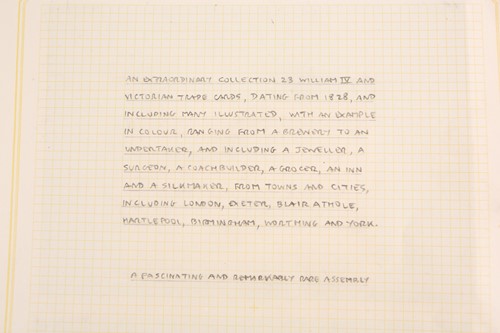 AN EXTRAORDINARY COLLECTION 23 WILLIAM IV AND
VICTORIAN TRADE CARDS, DATING FROM 1828, AND
INCLUDING MANY ILLUSTRATED, WITH AN EXAMPLE
IN COLOUR, RANGING FROM A BREWERY TO AN
UNDERTAKER, AND INCLUDING A JEWELLER, A
SURGEON, A COACHBUILDER, A GROCER, AN INN
AND A SILKMAKER, FROM TOWNS AND CITIES,
INCLUDING LONDON, EXETER, BLAIR ATHOLE,
HARTLEPOOL, BIRMINGHAM, WORTHING AND YORK.
A FASCINATING AND REMARKABLY RARE ASSEMBLY